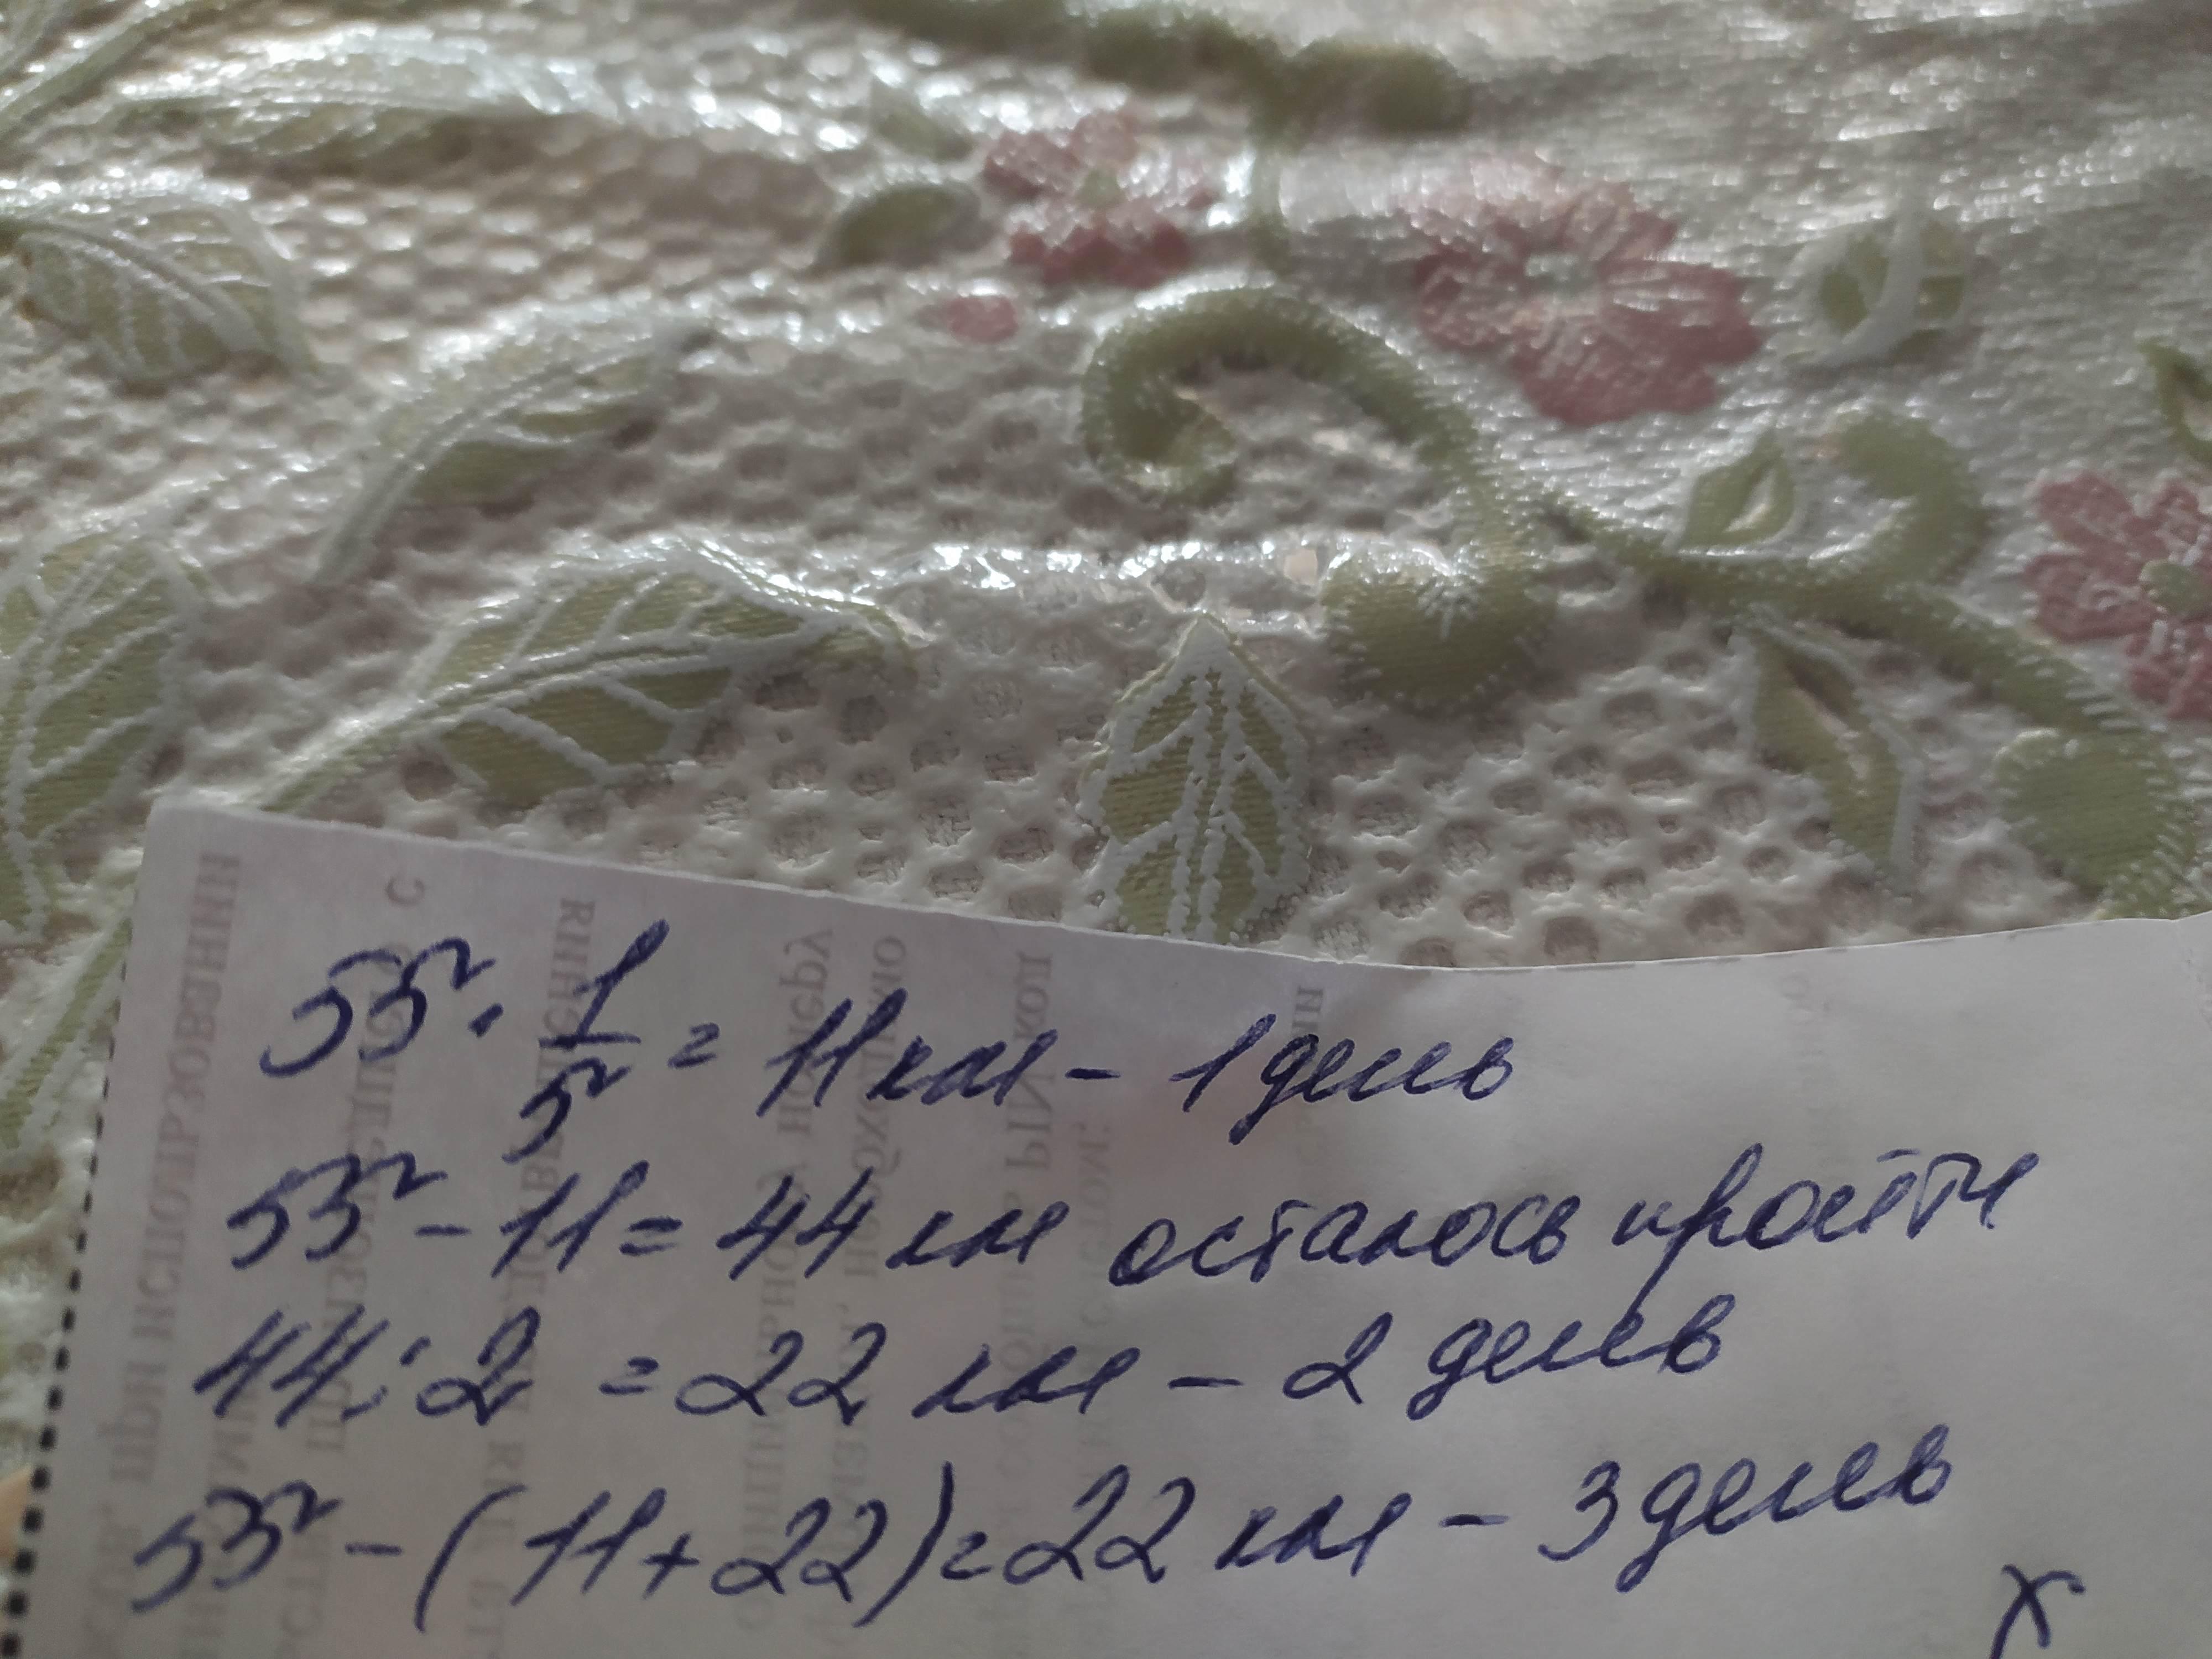 55 · 1/5 = 11 км - 1 день
55 - 11 = 44 км осталось пройти
44 : 2 = 22 км - 2 день
55 - (11 + 22) = 22 км - 3 день
х